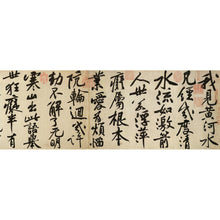 我見黃河水
凡經幾度清
水流如激箭
人世若浮萍
癡屬根本
業愛為煩惱
阬輪迴幾許
劫不解了无明
寒山出此語舉
世狂癡半有